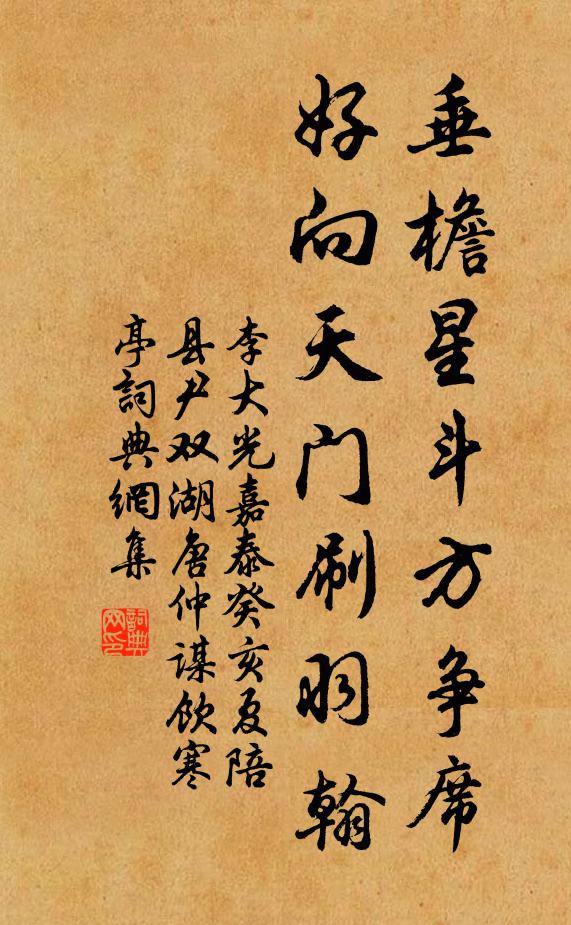 垂檐星斗方争席
好向天门刷羽翰
李大光嘉泰癸亥夏陪
县尹双湖唐仲谋饮寒
亭詞典網集
詞典
网印